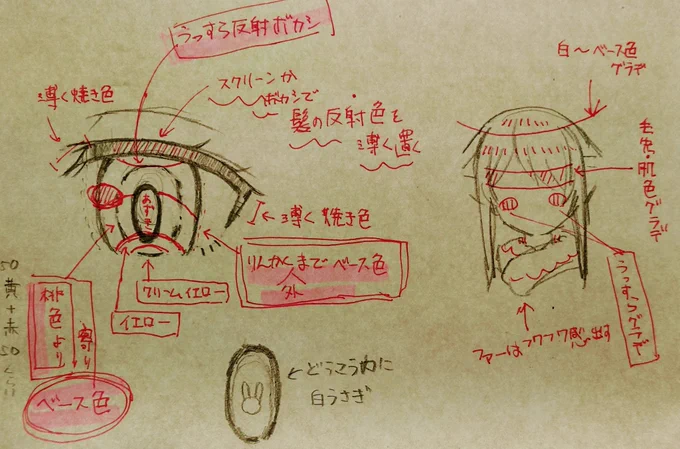 うっすら反射ボカシ
薄く焼き色
スクリーンか
ボカシで
髪の反射色を
薄く置く
あずき
薄く焼き色
りんかくまでベース色
外
クリームイエロー
イエロー
桃色より
寄り
ベース色
50
黄+赤
50くらい
どうこう内に
白うさぎ
白〜ベース色
グラデ
毛色・肌色グラデ
うっすらグラデ
ファーはフワフワ感出す